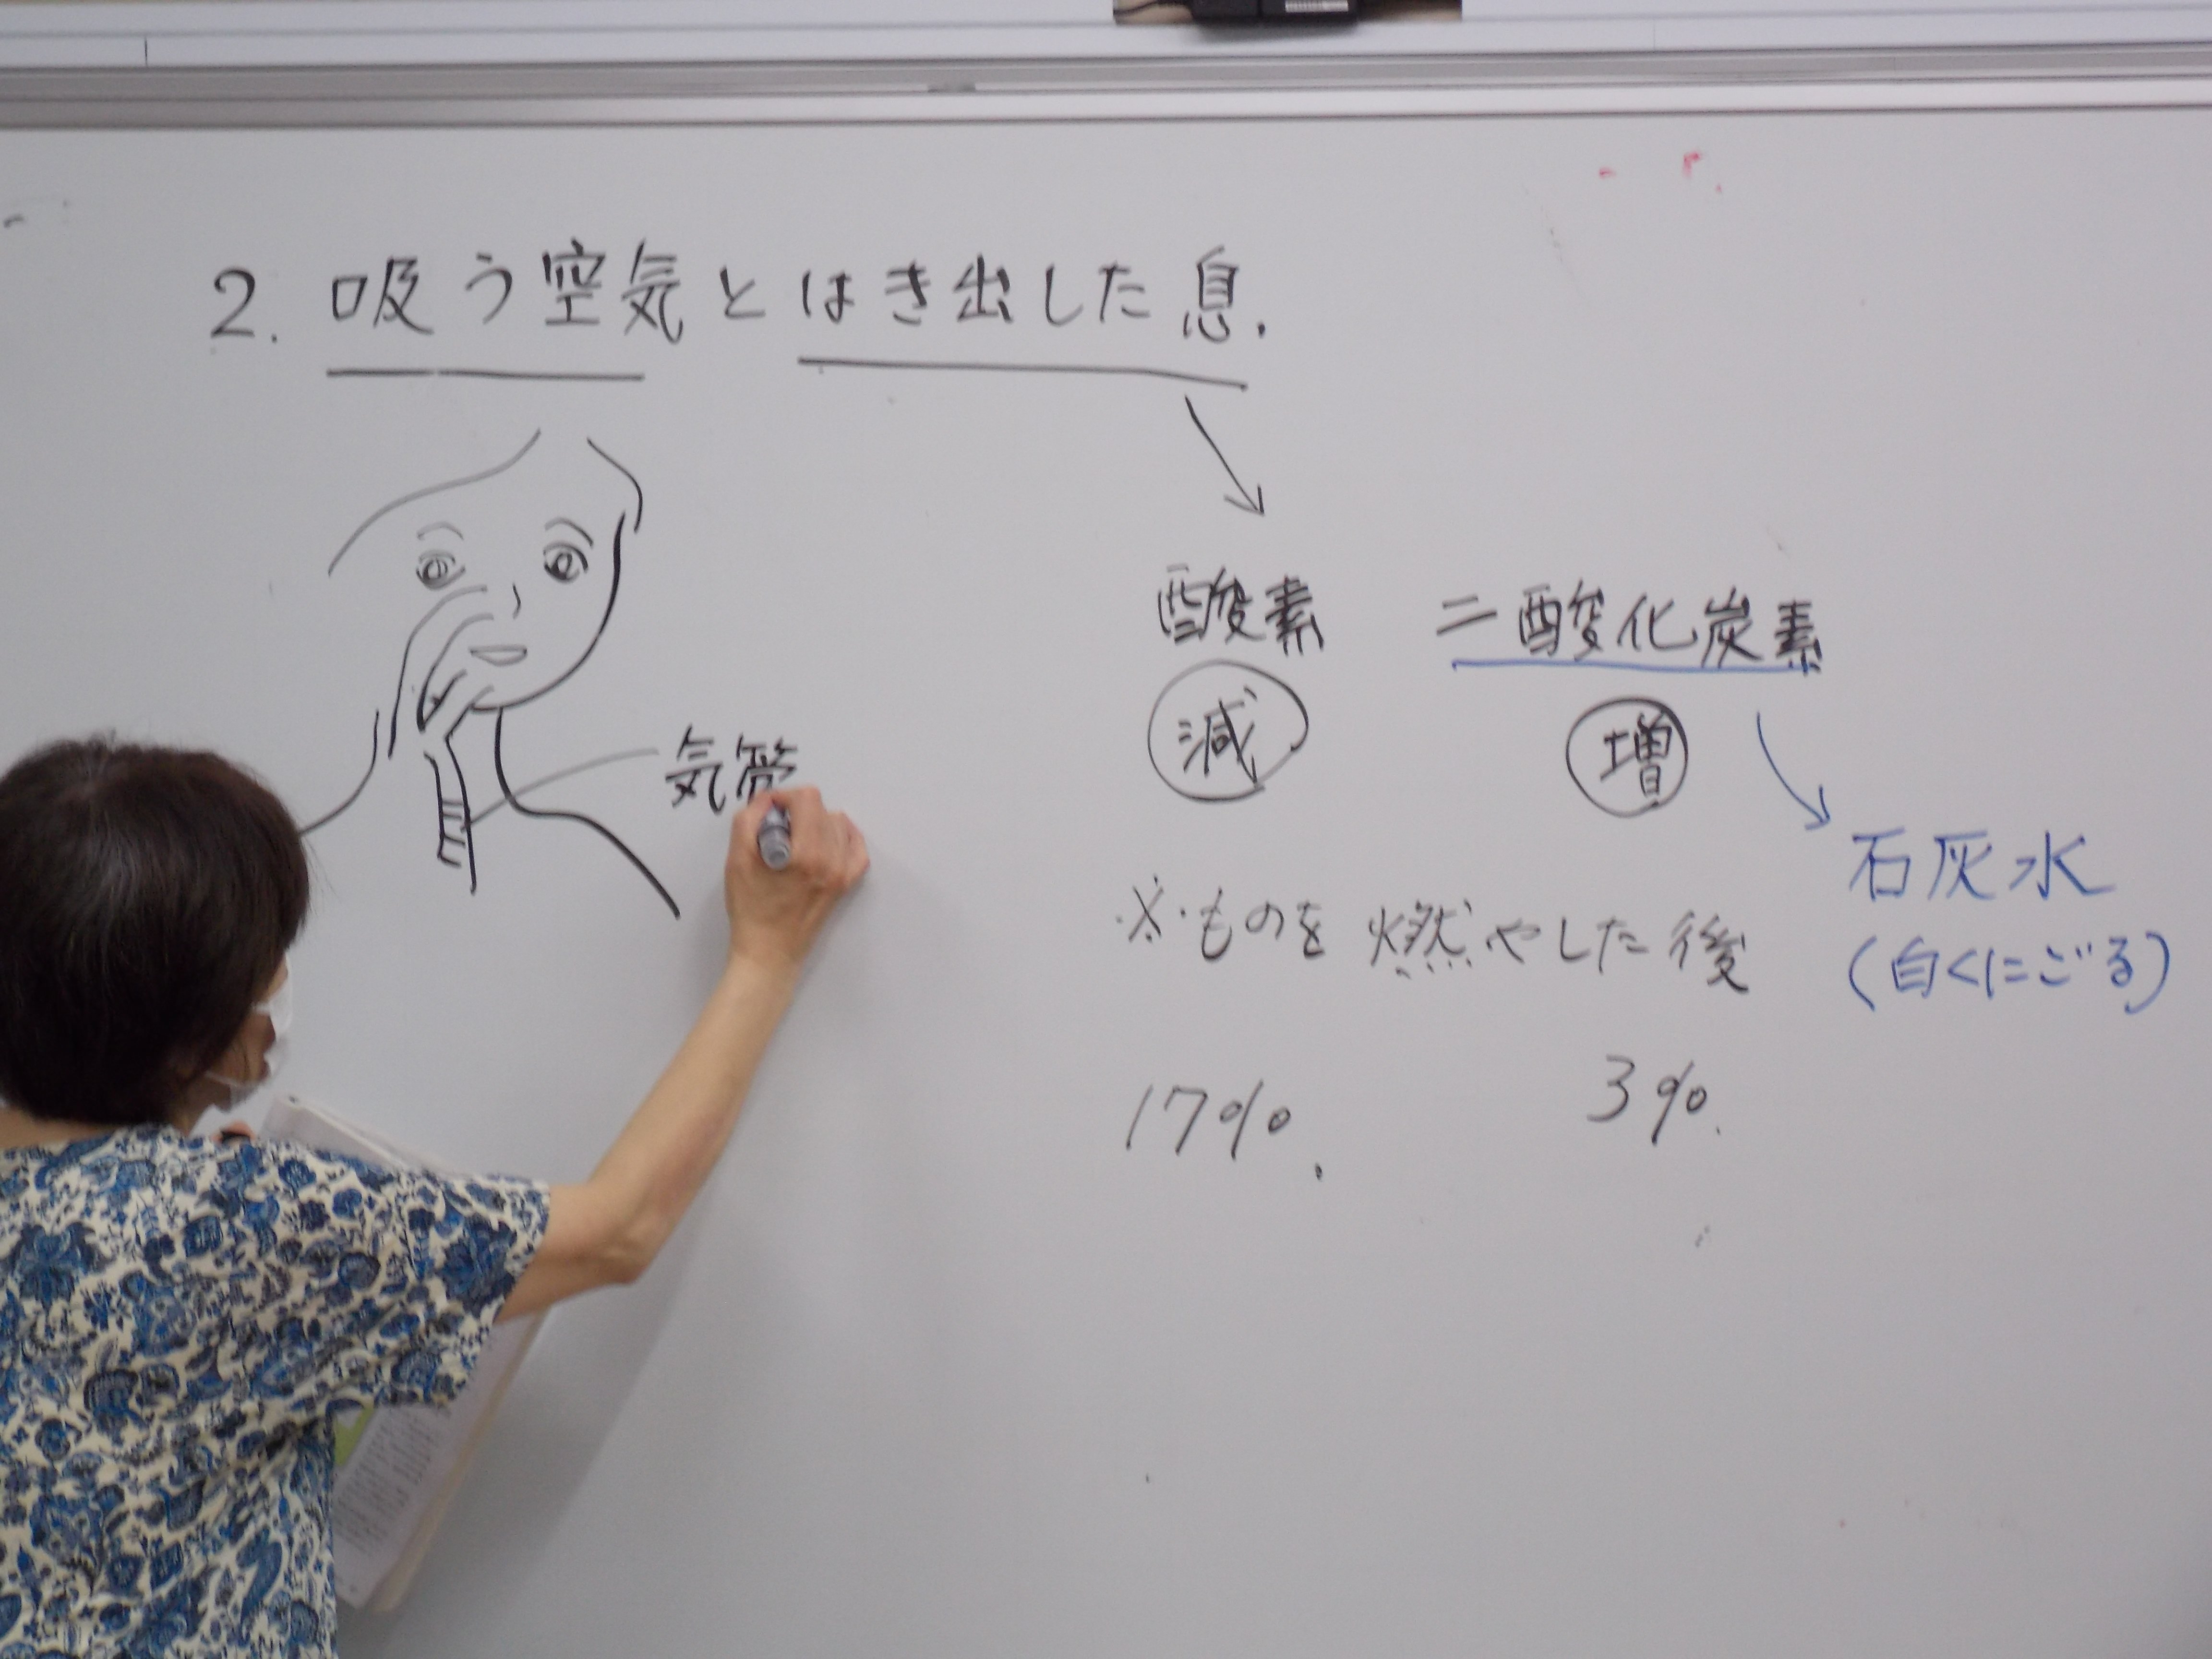 2. 吸う空気とはき出した息.
酸素 二酸化炭素
減 増
気管
石灰水
(白くにごる)
※・ものを燃やした後
17%. 3%.